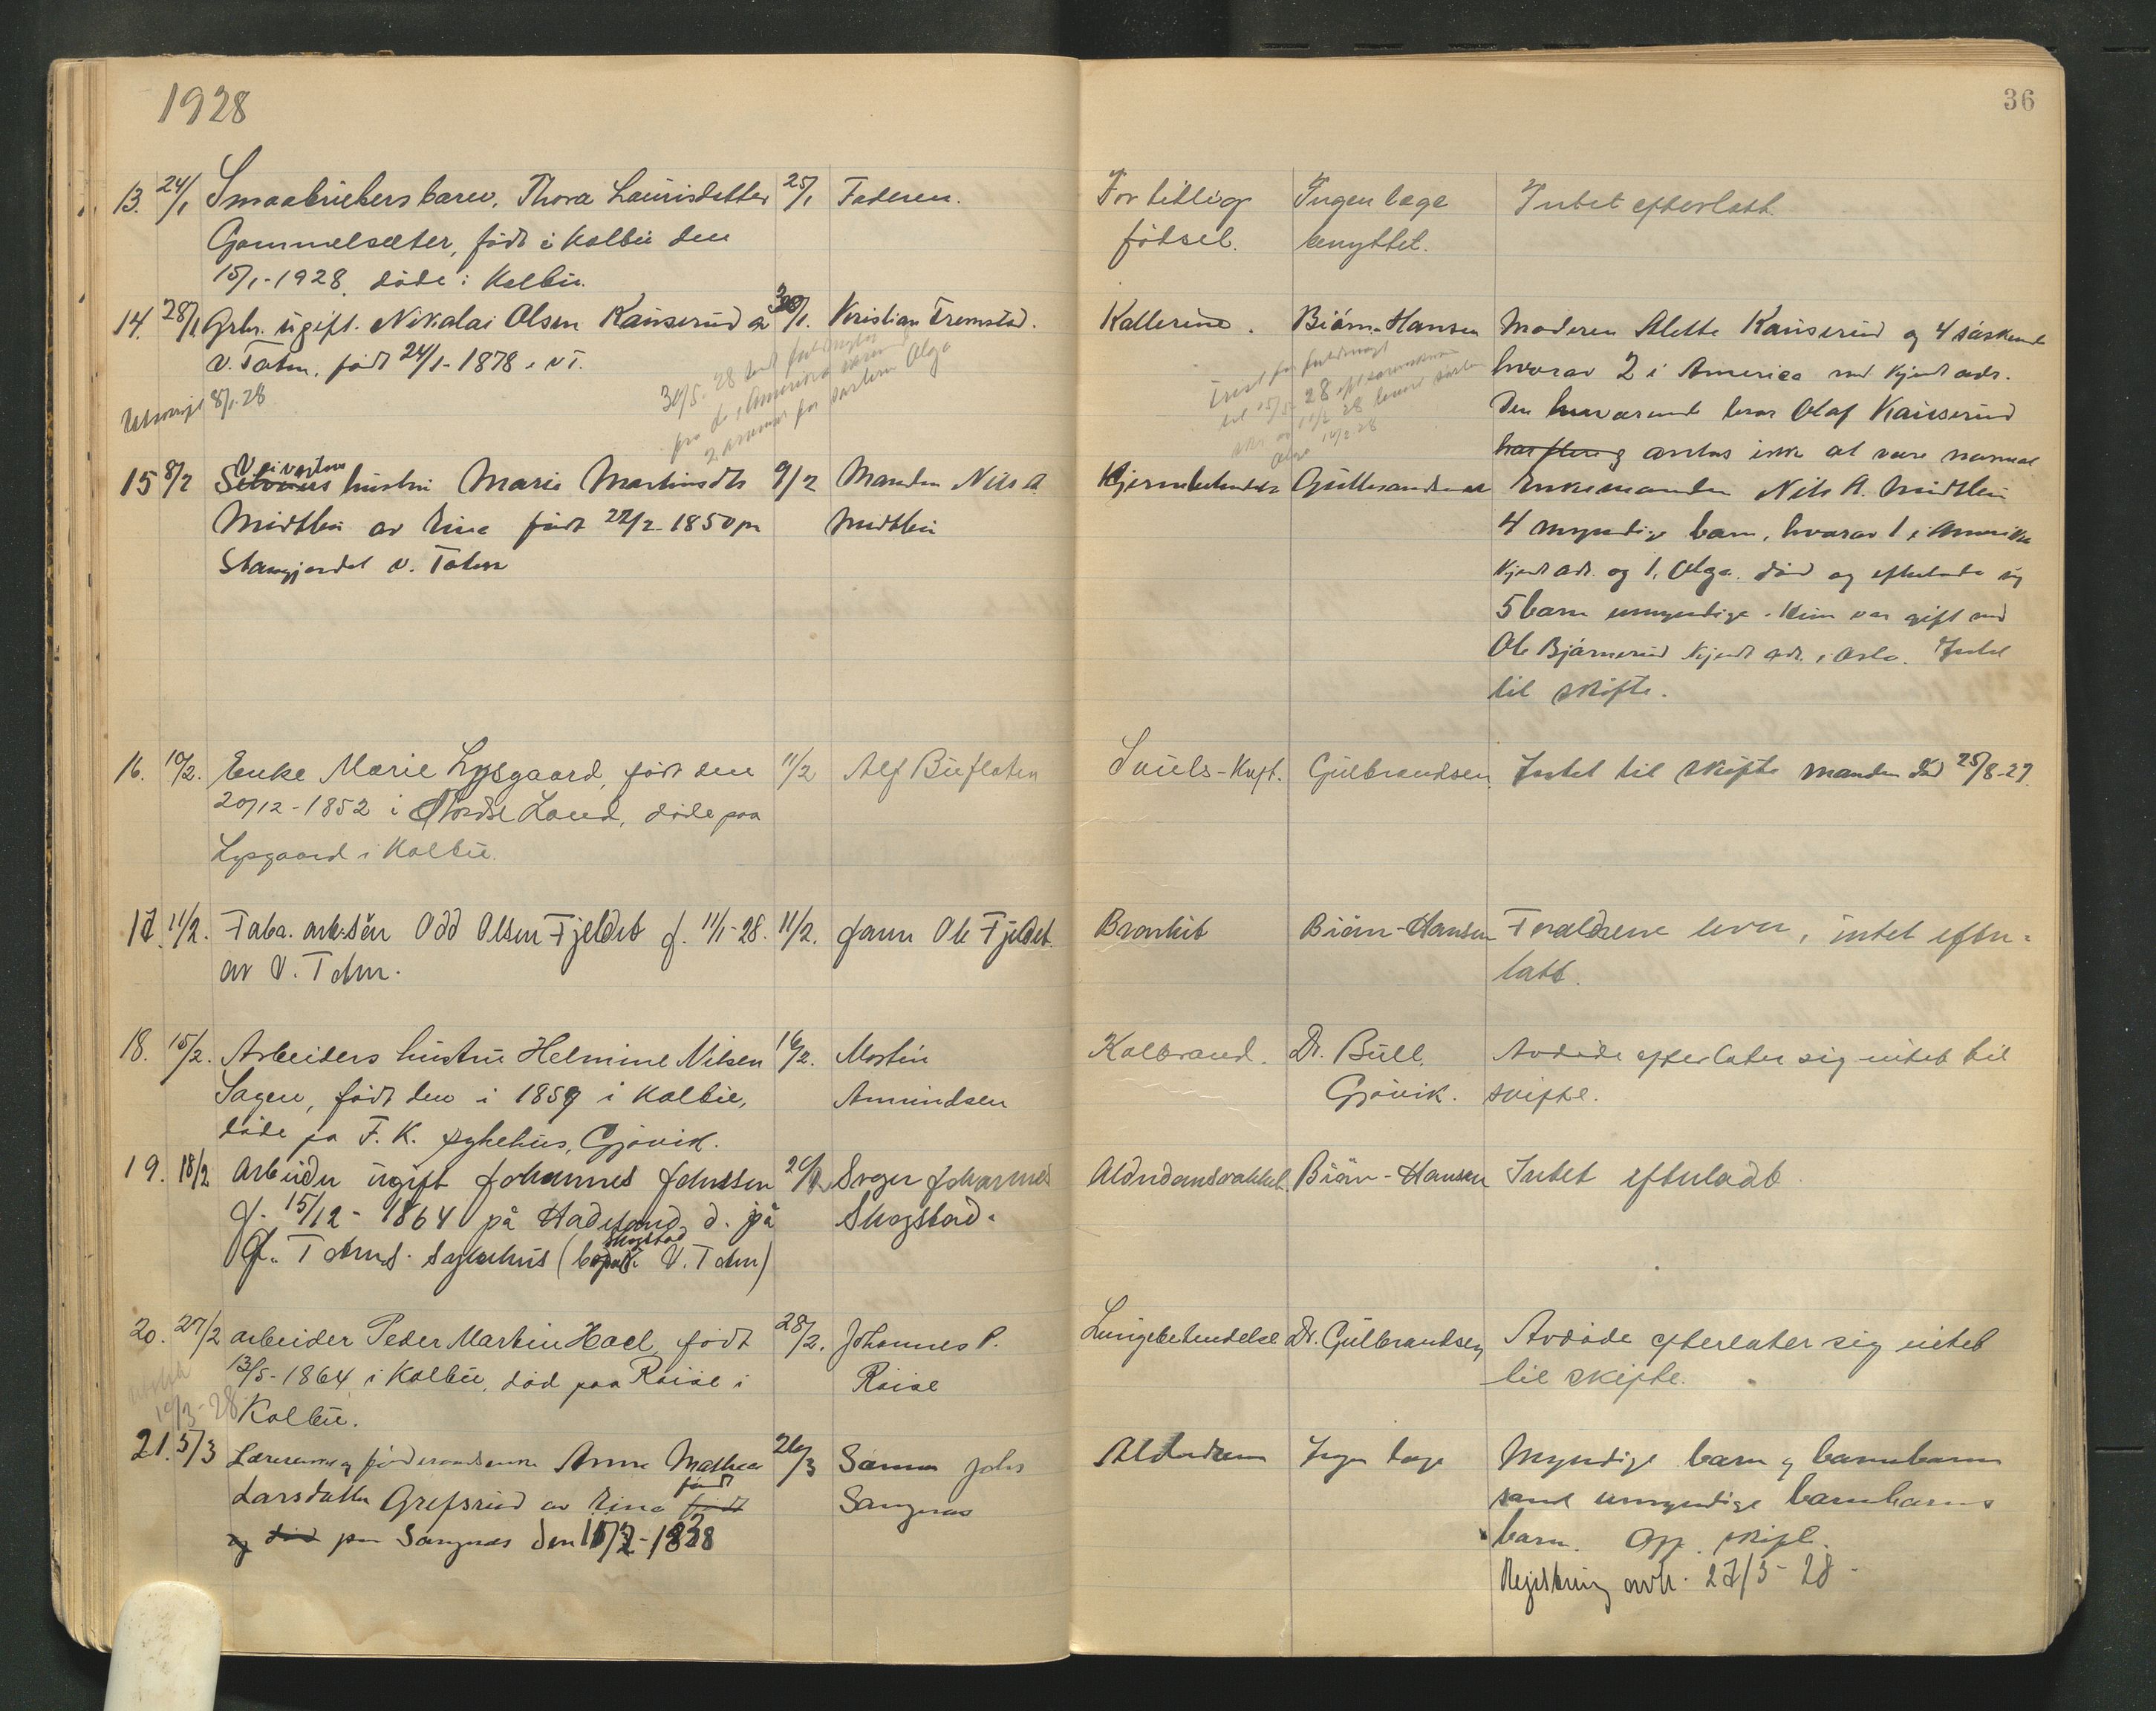 1928
36
13. 24/1 Smaabrukers barn, Thora Laurisdatter 25/1 Faderen. For tidlig Ingen læge Intet efterlatt.
Gammelsæter, født i Kolbu den fødsel. benyttet.
15/1-1928, døde i Kolbu.
14. 28/1 Grbr. ugift. Nikolai Olsen Kauserud av 30/1. Kristian Fremstad. Kallerine. Biørn-Hansen Moderen Alette Kauserud og 4 søskende
V. Toten, født 24/1-1878 i VT. hvorav 2 i America med kjendt adr.
30/5-28 sendt
8/1-28 28
2 Olga Olga 14/2-28
Den hværende bror Olaf Kauserud
antas ikke at være normal
15 8/2 Veivokters hustru Marie Martinsdtr 9/2 Manden Nils A Hjernebetendelse Gulbrandsen Enkemanden Nils A. Midtlien
Midtlien av Eina født 22/2-1850 på Midtlien 4 myndige barn, hvorav 1 i Amerika
Stangjordet V. Toten kjendt adr. og 1, Olga død og efterlod sig
5 barn umyndige. Hun var gift med
Ole Bjørnerud kjendt adr. i Oslo. Intet
til skifte.
16. 10/2. Enke Marie Lysgaard, født den 11/2 Alf Bufloten Gulbrandsen. Intet til skifte manden død 25/8-27.
20/12-1852 i Nordre Land, døde paa
Lysgaard i Kolbu.
17. 11/2. Fabr. arb. søn Odd Olsen Fjeldet f. 11/1-28. 11/2. faren Ole Fjeldet. Bronkit Biørn-Hansen Foreldrene lever, intet efter-
av V. Toten. latt.
18. 15/2. Arbeiders hustru Helmine Nilsen 16/2. Martin Kolbrand. Dr. Bull. Avdøde efterlater sig intet til
Sagen, født den i 1859 i Kolbu, Amundsen Gjøvik. skifte.
døde pa F. K. sykehus, Gjøvik.
19. 18/2 Arbeider ugift Johannes Johnssen 20/2 Svoger Johannes Alderdomsvakkel. Biørn-Hansen Intet efterladt.
f. 15/12-1864 på Hadeland, d. på Skogstad.
Totens sykehus (bopæl Skogstad V. Toten)
20. 27/2 arbeider Peder Martin Hoel, født 28/2. Johannes P. Lungebetendelse Dr. Gulbrandsen Avdøde efterlater sig intet
13/5-1864 i Kolbu, død paa Raise i Raise til skifte.
10/3-28 Kolbu.
21. 5/3 Lærerenke og føderaadsenke Anne Mathea 26/3 Sønnen Johs Alderdom Ingen læge Myndige barn og barnebarn
Larsdatter Grefsrud av Eina født Sangnæs samt umyndige barnebarns
og død paa Sangnæs den barn. Opp. skifte.
Registrering avh. 27/3-28.